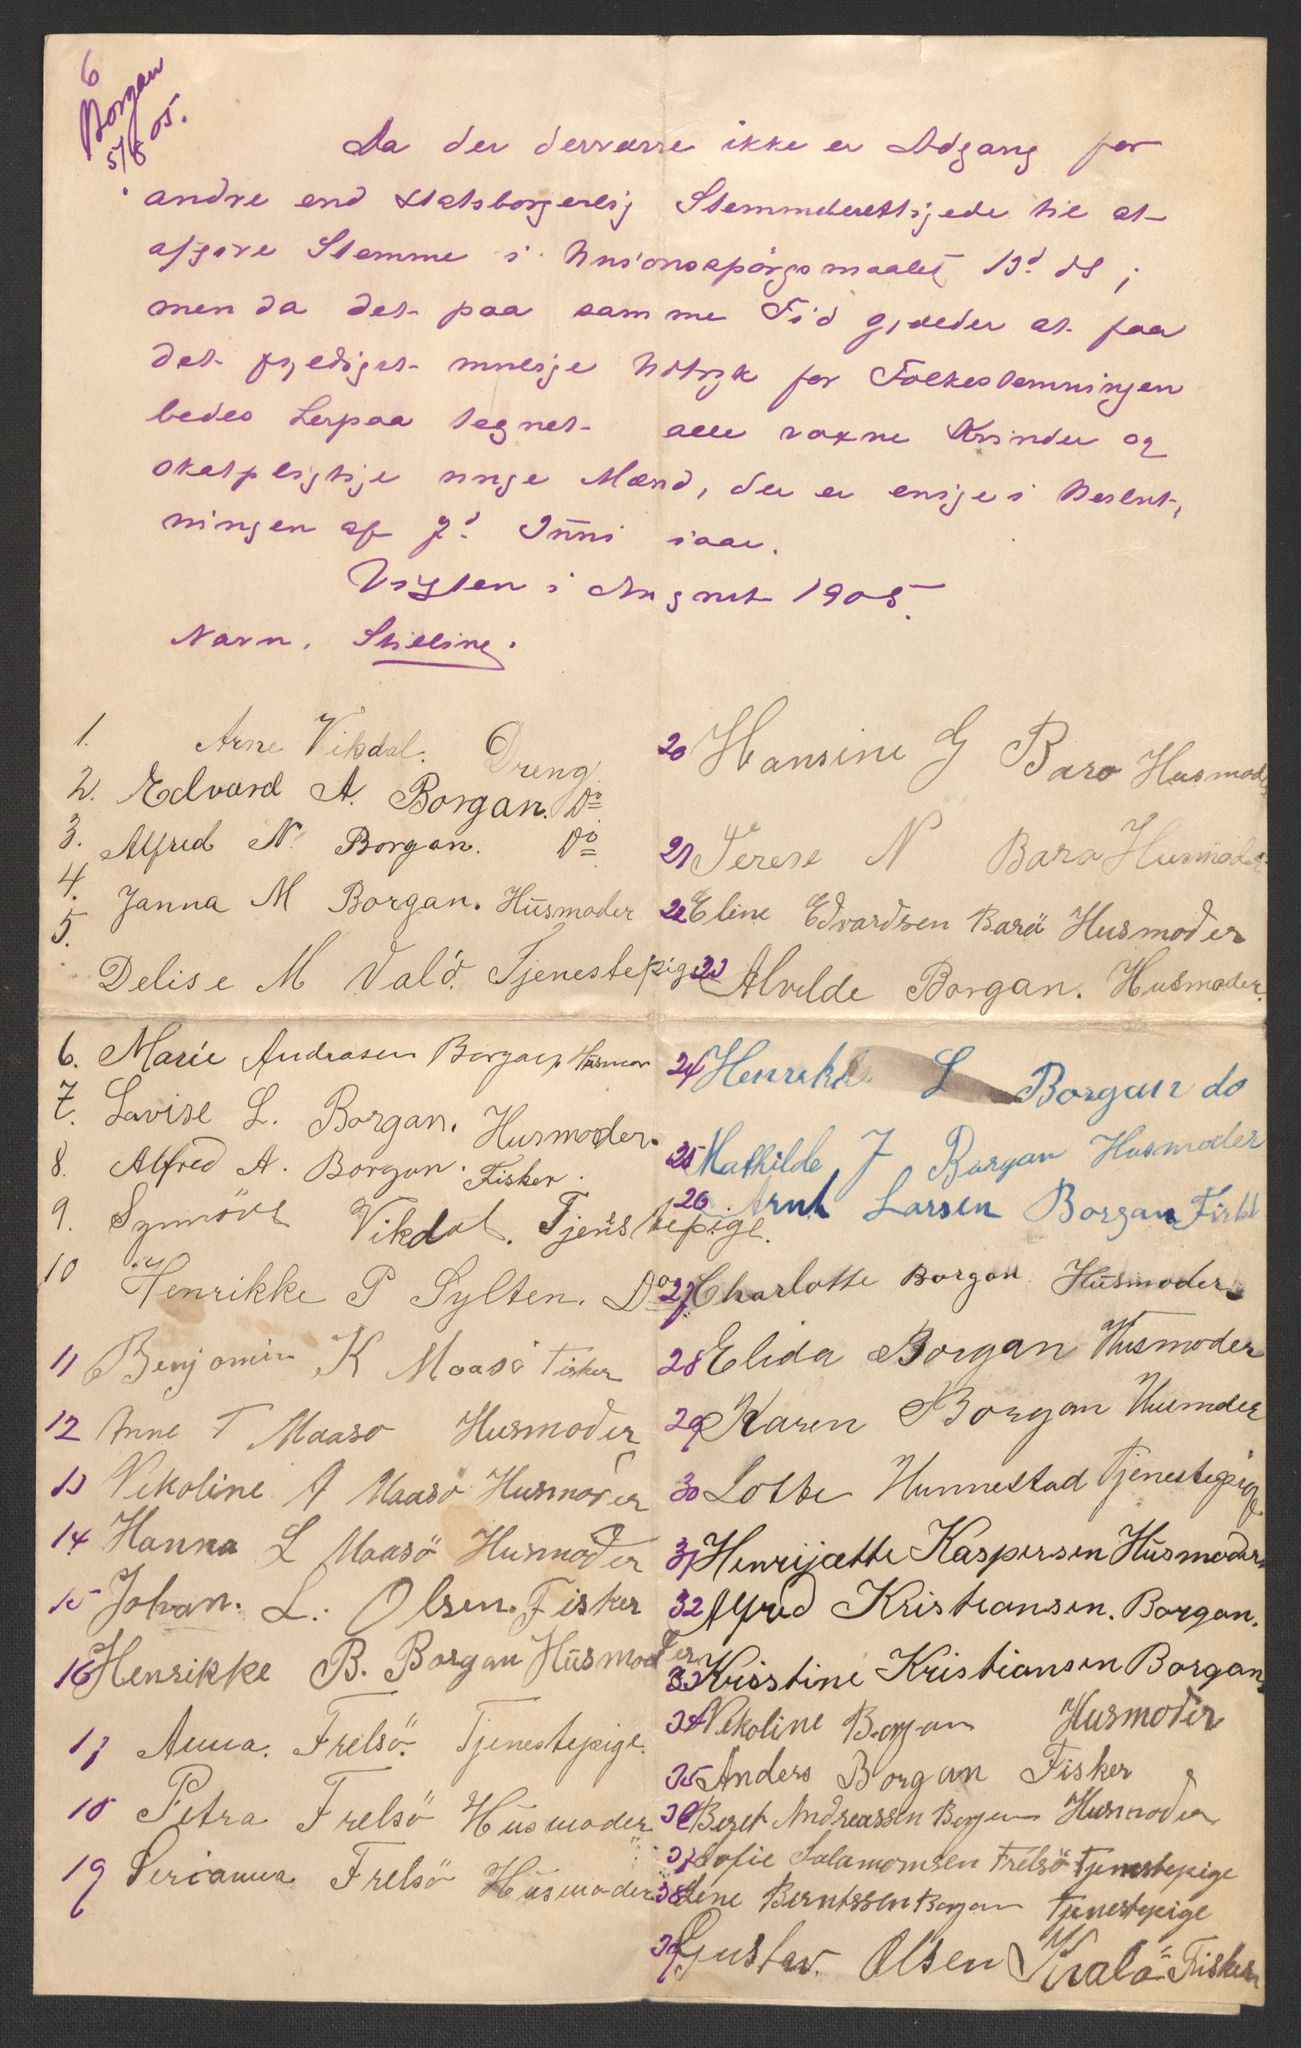 6
Borgan
5/8 05.
Da der desværre ikke er Adgang for
andre end statsborgerlig Stemmderettigede til at
afgøre Stemme i Unionsspørgsmaalet 13d ds;
men da det paa samme Tid gjælder at faa
det fyldigst mulige Udtryk for Folkestemningen
bedes herpaa tegnet alle voxne Kvinder og
skatpligtige unge Mænd, der er enige i Beslut-
ningen af 7d Juni iaar.
Vigten i August 1905.
Navn. Stilling.
1. Arne Vikdal. Dreng
2. Edvard A. Borgan. Do
3. Alfred N. Borgan. Do
4. Janna M Borgan. Husmoder
5. Delise M Valö. Tjenestepige
6. Marie Andrasen Borgan Husmor
7. Lovise L. Borgan. Husmoder.
8. Alfred A. Borgan. Fisker.
9. Synnöve Vikdal. Tjenstepige.
10 Henrikke P Sylten. Do
11 Benjamin K Maasö Fisker
12 Anne T Maaso Husmoder
13 Nekoline A Maasö Husmoder
14 Hanna L Maasö Husmoder
15 Johan. L. Olsen. Fisker
16 Henrikke B. Borgan Husmoder
17 Anna. Frelsö. Tjenestepige.
18 Petra Frelsö Husmoder
19 Serianna Frelsö Husmoder
20 Hansine G Barö Husmoder
21 Terese N Bara Husmoder
22 Eline Edvardsen Barö Husmoder
23 Alvilde Borgan. Husmoder.
24 Henrikke L Borgan do
25 Mathilde J Borgan Husmoder
26 Arnt Larsen Borgan Fisker
27 Charlotte Borgan Husmoder
28 Elida Borgan Husmoder
29 Karen Borgan Husmoder
30 Lotte Hunnestad Tjenestepige
31 Henrijætte Kaspersen Husmoder
32 Alfred Kristiansen. Borgan.
33 Kristine Kristiansen Borgan
34 Nekoline Borgan Husmoder
35 Anders Borgan Fisker
36 Beret Andreassen Borgan Husmoder
37 Sofie Salamomsen Frelsö Tjenestepige
38 Lene Berntssen Borgan Tjenestepige
39 Gustav. Olsen Kvalö Fisker